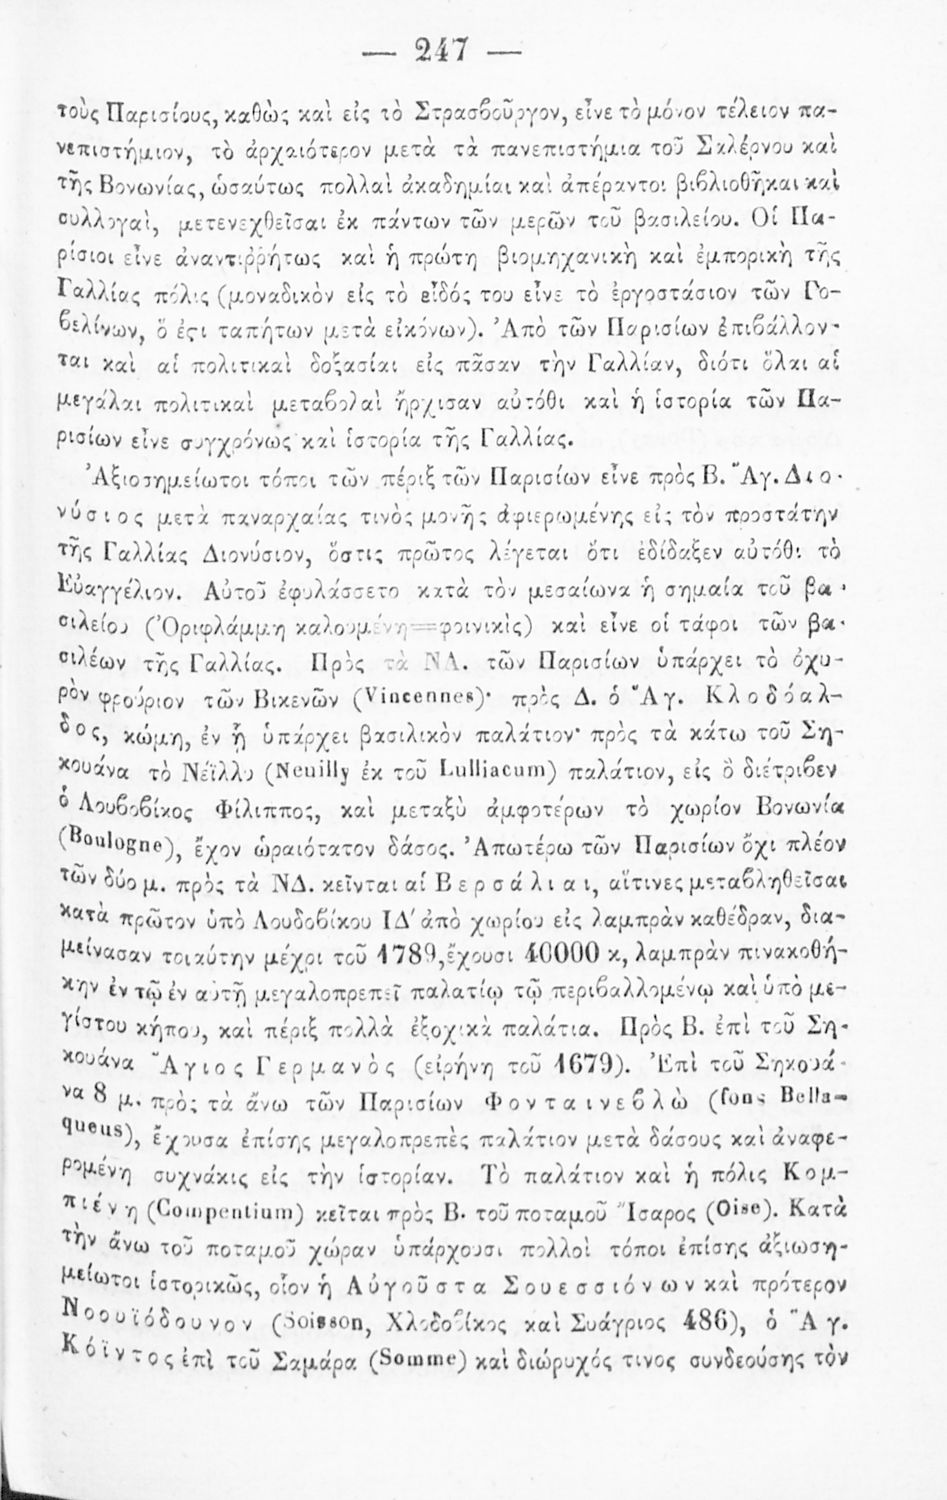 — 247 —
τοὺς Παρισίους, καθὼς καὶ εἰς τὸ Στρασβοῦργον, εἶνε τὸ μόνον τέλειον πα-
νεπιστήμιον, τὸ ἀρχαιότερον μετὰ τὰ πανεπιστήμια τοῦ Σαλέρνου καὶ
τῆς Βονωνίας, ὡσαύτως πολλαὶ ἀκαδημίαι καὶ ἀπέραντοι βιβλιοθῆκαι καὶ
συλλογαὶ, μετενεχθεῖσαι ἐκ πάντων τῶν μερῶν τοῦ βασιλείου. Οἱ Πα-
ρίσιοι εἶνε ἀναντιῤῥήτως καὶ ἡ πρώτη βιομηχανικὴ καὶ ἐμπορικὴ τῆς
Γαλλίας πόλις (μοναδικὸν εἰς τὸ εἶδός του εἶνε τὸ ἐργοστάσιον τῶν Γο-
βελίνων, ὅ ἐςι ταπήτων μετὰ εἰκόνων). Ἀπὸ τῶν Παρισίων ἐπιβάλλον-
ται καὶ αἱ πολιτικαὶ δοξασίαι εἰς πᾶσαν τὴν Γαλλίαν, διότι ὅλαι αἱ
μεγάλαι πολιτικαὶ μεταβολαὶ ἤρχισαν αὐτόθι καὶ ἡ ἱστορία τῶν Πα-
ρισίων εἶνε συγχρόνως καὶ ἱστορία τῆς Γαλλίας.
Ἀξιοσημείωτοι τόποι τῶν πέριξ τῶν Παρισίων εἶνε πρὸς Β. Ἅγ. Διο-
νύσιος μετὰ παναρχαίας τινὸς μονῆς ἀφιερωμένης εἰς τὸν προστάτην
τῆς Γαλλίας Διονύσιον, ὅστις πρῶτος λέγεται ὅτι ἐδίδαξεν αὐτόθι τὸ
Εὐαγγέλιον. Αὐτοῦ ἐφυλάσσετο κατὰ τὸν μεσαίωνα ἡ σημαία τοῦ βα-
σιλείου (Ὀριφλάμμη καλουμένη=φοινικὶς) καὶ εἶνε οἱ τάφοι τῶν βα-
σιλέων τῆς Γαλλίας. Πρὸς τὰ ΝΑ. τῶν Παρισίων ὑπάρχει τὸ ὀχυ-
ρὸν φρούριον τῶν Βικενῶν (Vincennes)· πρὸς Δ. ὁ Ἅγ. Κλοδόαλ-
δος, κώμη, ἐν ᾗ ὑπάρχει βασιλικὸν παλάτιον· πρὸς τὰ κάτω τοῦ Ση-
κουάνα τὸ Νέϊλλυ (Neuilly ἐκ τοῦ Lulliacum) παλάτιον, εἰς ὃ διέτριβεν
ὁ Λουβοβίκος Φίλιππος, καὶ μεταξὺ ἀμφοτέρων τὸ χωρίον Βονωνία
(Boulogne), ἔχον ὡραιότατον δάσος. Ἀπωτέρω τῶν Παρισίων ὄχι πλέον
τῶν δύο μ. πρὸς τὰ ΝΔ. κεῖνται αἱ Βερσάλιαι, αἵτινες μεταβληθεῖσαι
κατὰ πρῶτον ὑπὸ Λουδοβίκου ΙΔ΄ ἀπὸ χωρίου εἰς λαμπρὰν καθέδραν, δια-
μείνασαν τοιαύτην μέχρι τοῦ 1789, ἔχουσι 40000 κ, λαμπρὰν πινακοθή-
κην ἐν τῷ ἐν αὐτῇ μεγαλοπρεπεῖ παλατίῳ τῷ περιβαλλομένῳ καὶ ὑπὸ με-
γίστου κήπου, καὶ πέριξ πολλὰ ἐξοχικὰ παλάτια. Πρὸς Β. ἐπὶ τοῦ Ση-
κουάνα Ἅγιος Γερμανὸς (εἰρήνη τοῦ 1679). Ἐπὶ τοῦ Σηκουά-
να 8 μ. πρὸς τὰ ἄνω τῶν Παρισίων Φονταινεβλὼ (fons Bella-
queus), ἔχουσα ἐπίσης μεγαλοπρεπὲς παλάτιον μετὰ δάσους καὶ ἀναφε-
ρομένη συχνάκις εἰς τὴν ἱστορίαν. Τὸ παλάτιον καὶ ἡ πόλις Κομ-
πιένη (Compentium) κεῖται πρὸς Β. τοῦ ποταμοῦ Ἴσαρος (Oise). Κατὰ
τὴν ἄνω τοῦ ποταμοῦ χώραν ὑπάρχουσι πολλοὶ τόποι ἐπίσης ἀξιωση-
μείωτοι ἱστορικῶς, οἷον ἡ Αὐγοῦστα Σουεσσιόνων καὶ πρότερον
Νοουϊόδουνον (Soisson, Χλοδοβίκος καὶ Συάγριος 486), ὁ Ἅγ.
Κόϊντος ἐπὶ τοῦ Σαμάρα (Somme) καὶ διώρυχός τινος συνδεούσης τὸν